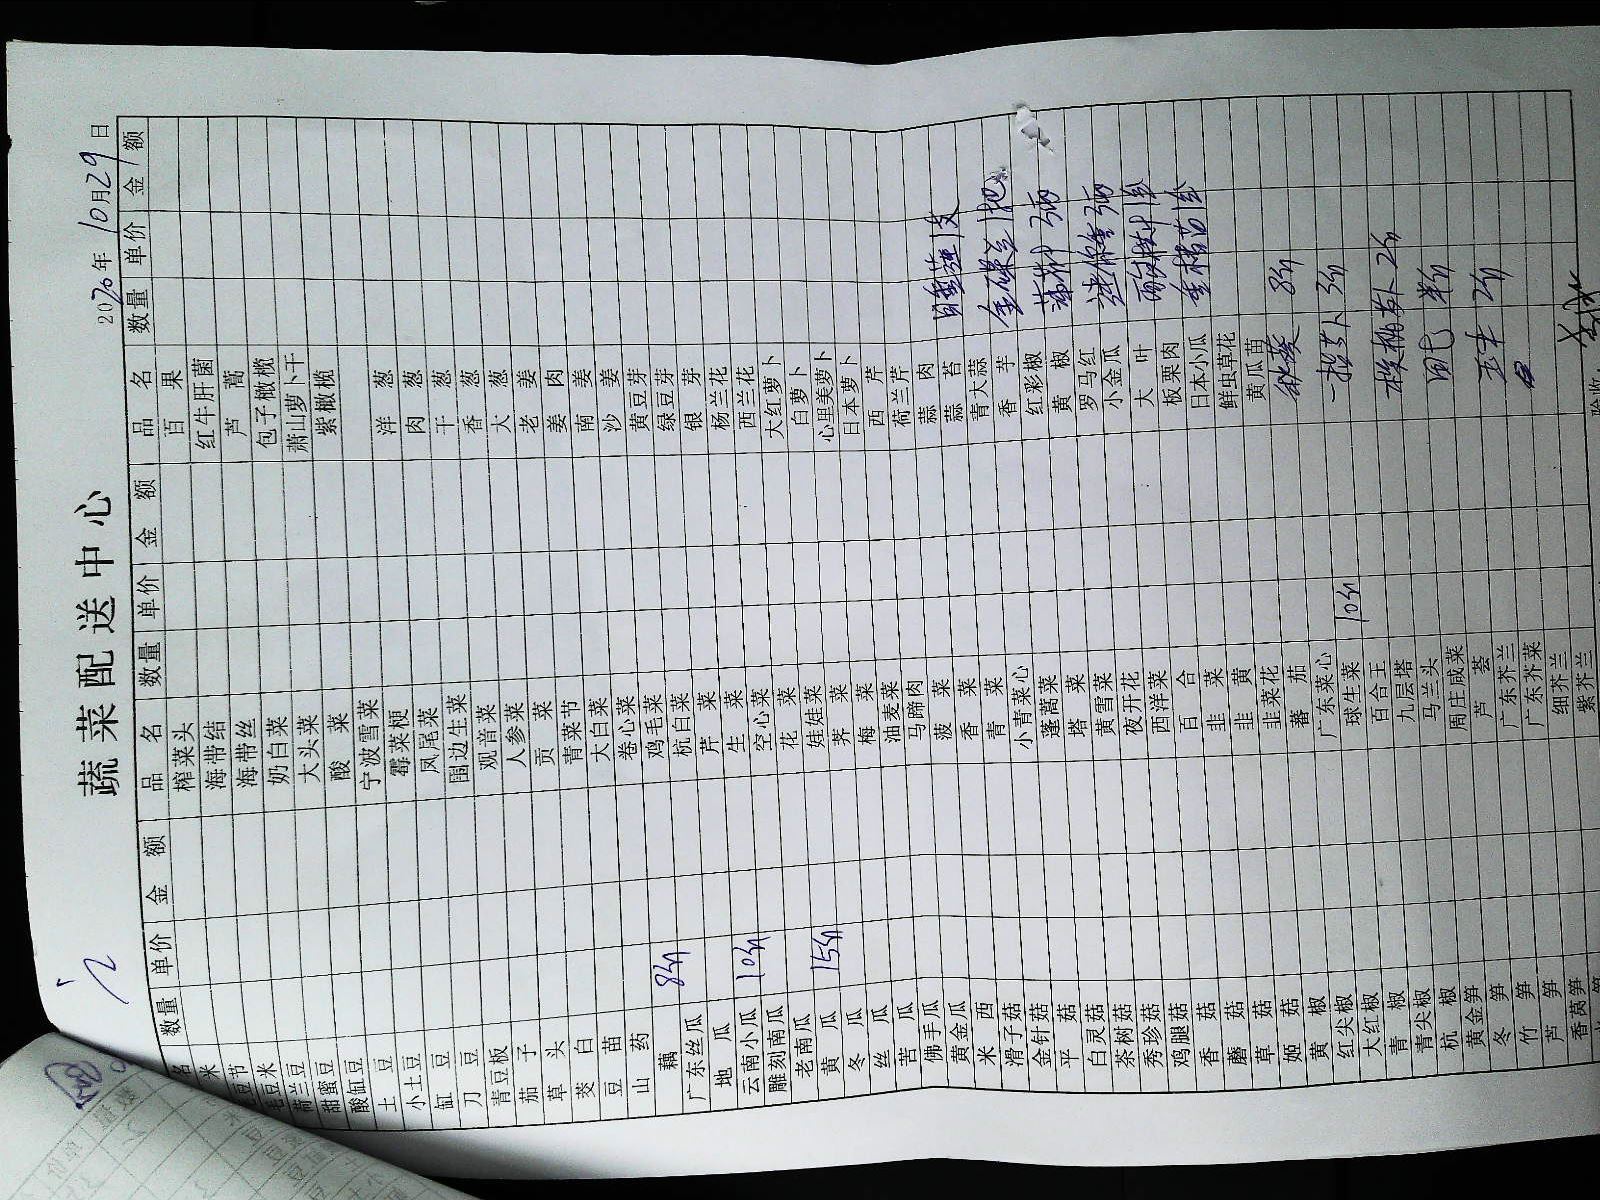 蔬菜配送中心
2020年10月29日
品名 数量 单价 金额 品名 数量 单价 金额 品名 数量 单价 金额
榨菜头 百果
海带结 红牛肝菌
海带丝 芦蒿
荷兰豆 奶白菜 包子橄榄
甜蜜豆 大头菜 萧山萝卜干
酸缸豆 酸菜 紫橄榄
土豆 宁波雪菜
小土豆 霉菜梗 洋葱
缸豆 凤尾菜 肉葱
刀豆 围边生菜 干葱
青豆板 观音菜 香葱
茄子 人参菜 大葱
草头 贡菜 老姜
茭白 青菜节 姜肉
豆苗 大白菜 南姜
山药 卷心菜 沙姜
藕 8斤 鸡毛菜 黄豆芽
广东丝瓜 杭白菜 绿豆芽
地瓜 芹菜 银芽
云南小瓜 10斤 生菜 杨兰花
雕刻南瓜 空心菜 西兰花
老南瓜 花菜 大红萝卜
黄瓜 15斤 娃娃菜 白萝卜
冬瓜 荠菜 心里美萝卜
丝瓜 梅菜 日本萝卜
苦瓜 油麦菜 西芹
佛手瓜 马蹄肉 荷兰芹
黄金瓜 菠菜 蒜肉
米西 香菜 蒜苔
滑子菇 青菜 青大蒜
金针菇 小青菜心 香芋
平菇 蓬蒿菜 红彩椒
白灵菇 塔菜 黄椒
茶树菇 黄雪菜 罗马红
秀珍菇 夜开花 小金瓜
鸡腿菇 西洋菜 大叶
香菇 百合 板栗肉
蘑菇 韭菜 日本小瓜
草菇 韭黄 鲜虫草花
姬菇 韭菜花 黄瓜苗
黄椒 番茄 秋葵 8斤
红尖椒 广东菜心
大红椒 球生菜 10斤
青椒 百合王
青尖椒 九层塔
杭椒 马兰头
黄金笋 周庄咸菜
冬笋 芦荟 玉米 2斤
竹笋 广东芥兰
芦笋 广东芥菜
香莴笋 细芥兰
紫芥兰
验收: